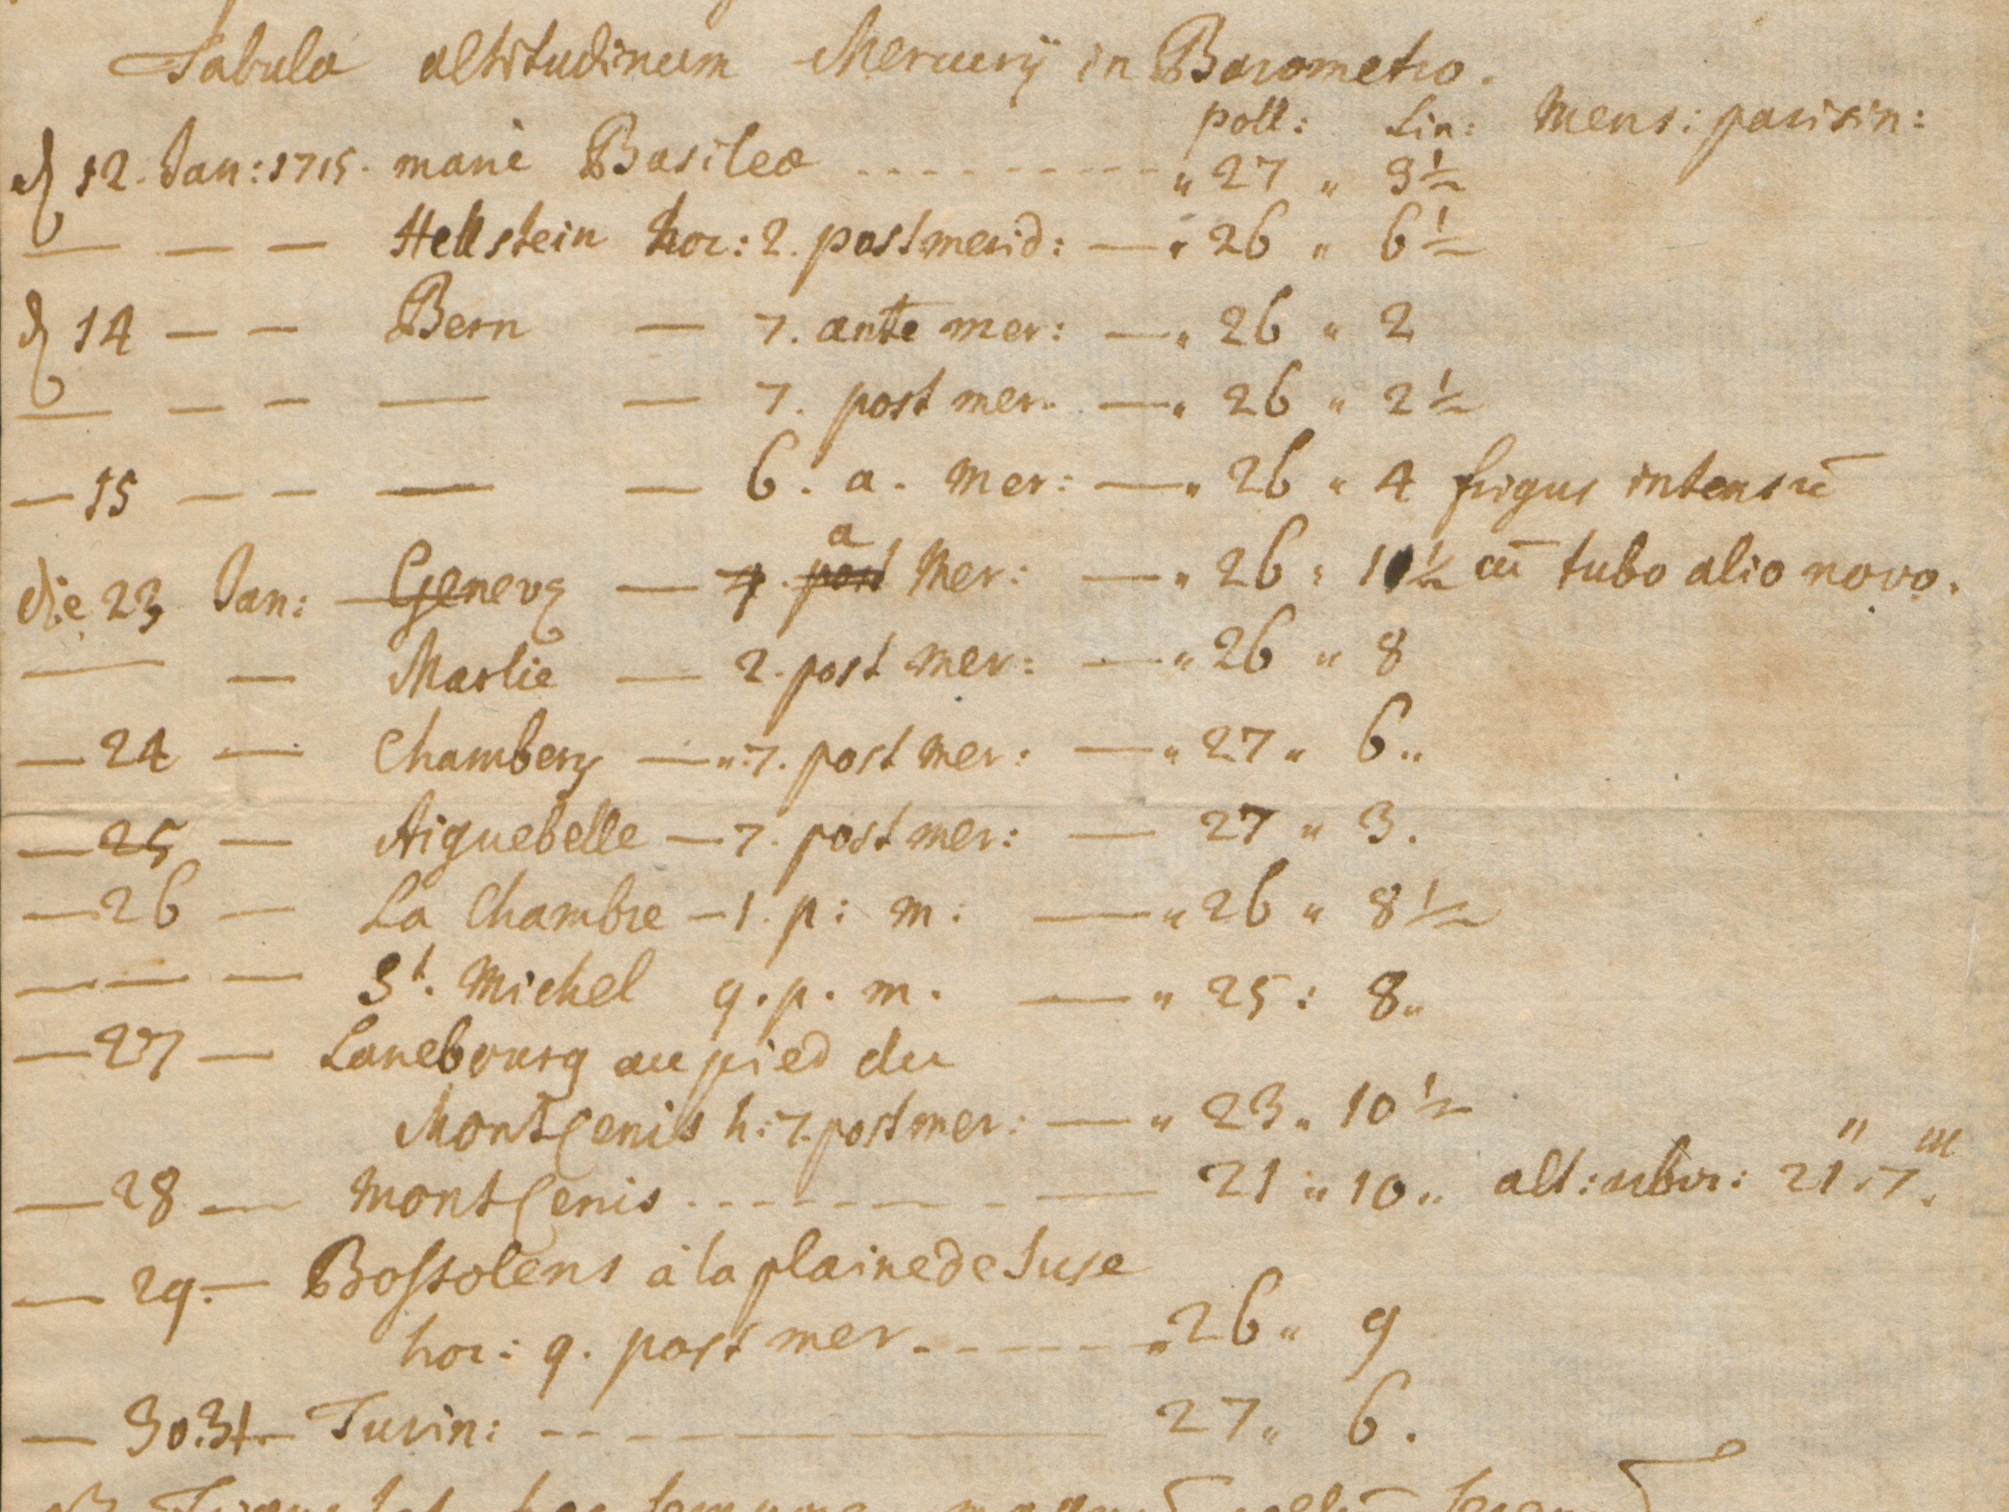 Tabula altitudinum Mercurij in Barometro.
poll: Lin: Mens: parisin:
d 12. Jan: 1715. manè Basileæ - - - - - - - - - „ 27 „ 3½
— — — Hellstein hor: 2. post merid: — „ 26 „ 6½
d 14 — — Bern — 7. ante mer: — „ 26 „ 2
— — — — — 7. post mer. — „ 26 „ 2½
— 15 — — — — 6. a. Mer: — „ 26 „ 4 frigus intensū
die 23 Jan: — Genevę — 7. a ~~post~~ Mer: — „ 26 „ 10½ cū tubo alio novo.
— — Marlie — 2. post Mer: — „ 26 „ 8
— 24 — Chambery — „ 7. post Mer: — „ 27 „ 6 „
— 25 — Aiguebelle — 7. post mer: — 27 „ 3.
— 26 — La Chambre — 1. p: m: — „ 26 „ 8½
— — — St. Michel 9. p. m. — „ 25 : 8 „
— 27 — Lanebourg au pied du
Mont Cenis h: 7. post mer: — „ 23 „ 10½
— 28 — Mont Cenis - - - - - - - — 21 „ 10 „ alt: 21." 7.'''
— 29. — Bossolens à la plaine de Suse
hor: 9. post mer - - - - - - „ 26 „ 9
— 30. 31. — Turin: - - - — — 27 „ 6.